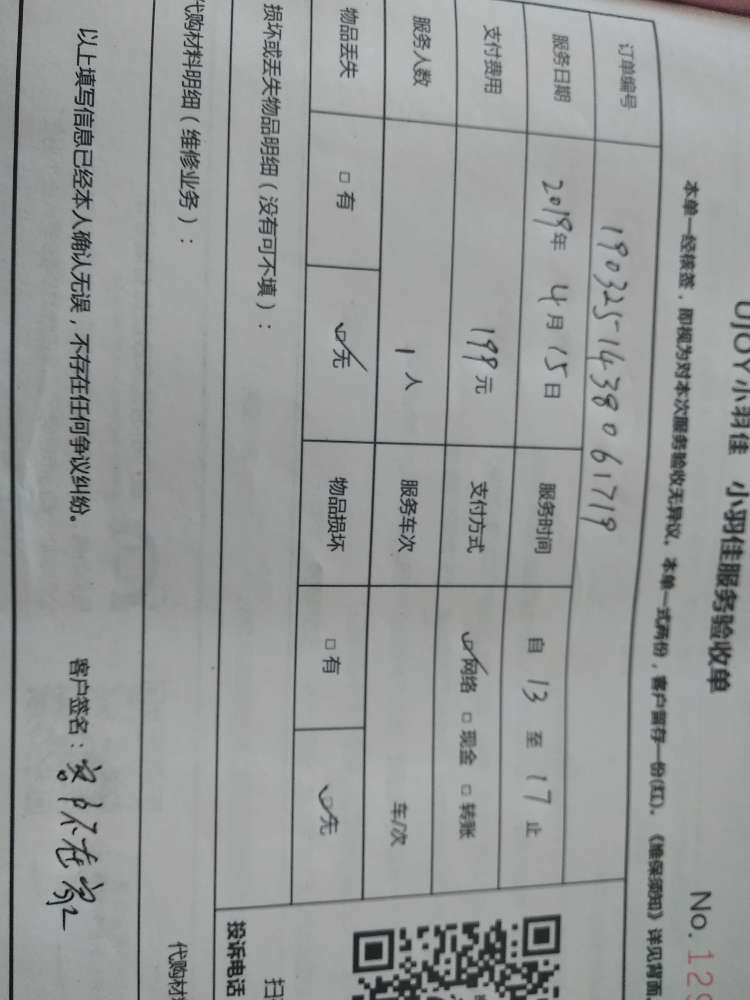 UJOY小羽佳 小羽佳服务验收单
No.129
本单一经核签，即视为对本次服务验收无异议。本单一式两份，客户留存一份(红)。《维保须知》详见背面
订单编号 190325-14380 61719
服务日期 2019年 4月 15日 服务时间 自 13 至 17 止
支付费用 199元 支付方式 网络 □ 现金 □ 转账
服务人数 1人 服务车次 车/次
物品丢失 □ 有 □ 无 物品损坏 □ 有 □ 无
损坏或丢失物品明细（没有可不填）：
代购材料明细（维修业务）：
投诉电话
代购材
以上填写信息已经本人确认无误，不存在任何争议纠纷。 客户签名：客户不在家